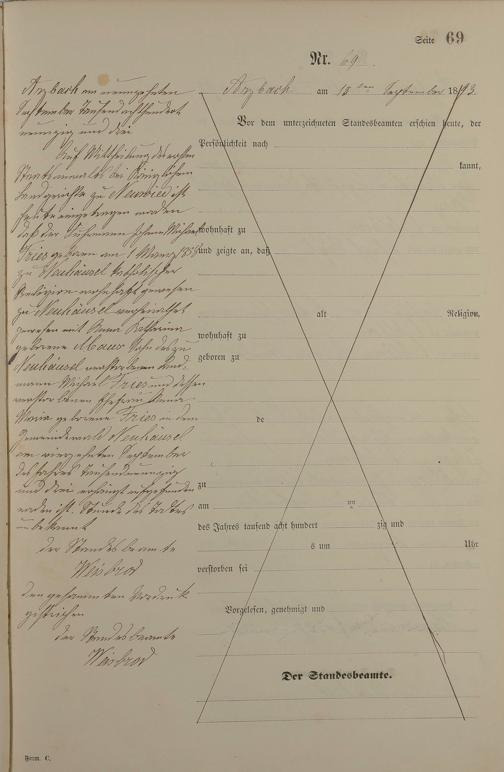 Seite 69
Nr. 69.
Arzbach am 15ten September 1893.
Vor dem unterzeichneten Standesbeamten erschien heute, der
Persönlichkeit nach
kannt,
wohnhaft zu
und zeigte an, daß
alt Religion,
wohnhaft zu
geboren zu
de
zu
am ten
des Jahres tausend acht hundert zig und
s um Uhr
verstorben sei
Vorgelesen, genehmigt und
Der Standesbeamte.
Form. C.
Arzbach am neunzehnten
September tausendachthundert
neunzig und drei
Auf Mittheilung des ersten
Staatsanwalts bei Königlichem
Landgerichte zu Neuwied ist
heute eingetragen worden
daß der Johann
Fries geboren am 1 März
zu Neuhäusel katholischer
Religion wohnhaft gewesen
zu Neuhäusel verheirathet
gewesen mit Anna Katharina
geborene Maur Sohn des zu
Neuhäusel verstorbenen
mann Michael Fries und dessen
verstorbenen Ehefrau Anna
Maria geborene Fries in dem
Gemeindewald Neuhäusel
am vierzehnten September
des Jahres tausend neunzig
und drei erhängt aufgefunden
worden ist. Stunde des Todes
unbekannt
der Standesbeamte
Weisbrod
den gesammten Vordruck
gestrichen
der Standesbeamte
Weisbrod